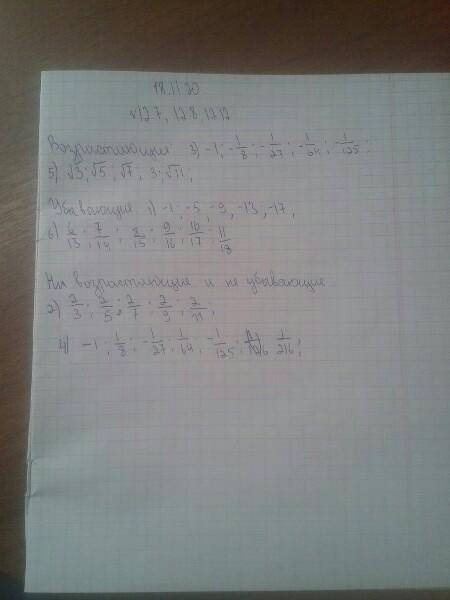 18.11.20
№12.7, 12.8, 12.12
Возрастающие 3) -1; -1/8; -1/27; -1/64; -1/125;
5) √3; √5; √7; 3; √11;
Убывающие 1) -1; -5; -9, -13, -17,
6) 6/13; 7/14; 8/15; 9/16; 10/17; 11/18
Ни возрастающие и не убывающие
2) 2/3; 2/5; 2/7; 2/9; 2/11;
4) -1; 1/8; -1/27; 1/64; -1/125; 1/216;